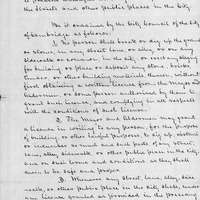 the Streets and other public places in the City.
Be it ordained by the City Council of the City
of Cambridge as follows:
1. No person shall break or dig up the ground
or stone, in any street, lane, or alley, or on any
sidewalk or common in the City, or erect any
for building, or place or deposit any stone, bricks,
timber, or other building materials thereon, without
first obtaining a written license from the Mayor
Aldermen, or some person authorized by them to
grant such license, and complying in all respects
with the conditions of such license.
2. The Mayor and Aldermen may grant
a license in writing to any person, for the purpose
of building, or other lawful purposes, to dig up, obstruct
or encumber so much and such parts of any street,
lane, alley, sidewalk or other public place in the City,
on such terms and conditions as they shall
deem to be safe and proper.
3. Whenever any street, lane, alley, side
walk, or other public place in the City, shall, under
any license granted as provided in the preceding